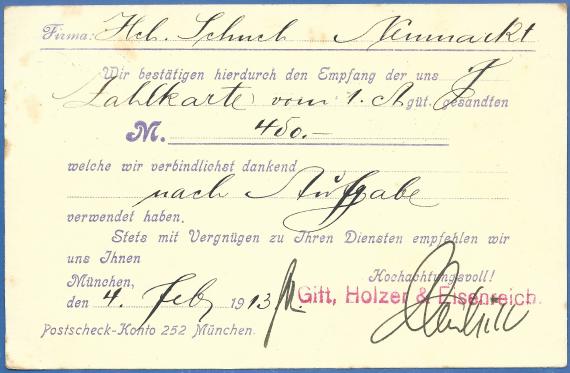 Firma: Hch. Schuch Neumarkt
Wir bestätigen hierdurch den Empfang der uns p
Zahlkarte vom 1. ds güt. gesandten
M. 450.-
welche wir verbindlichst dankend
nach Aufgabe
verwendet haben.
Stets mit Vergnügen zu Ihren Diensten empfehlen wir
uns Ihnen
München, Hochachtungsvoll!
den 4. Feb 1913 Gift, Holzer & Eisenreich.
Postscheck-Konto 252 München.